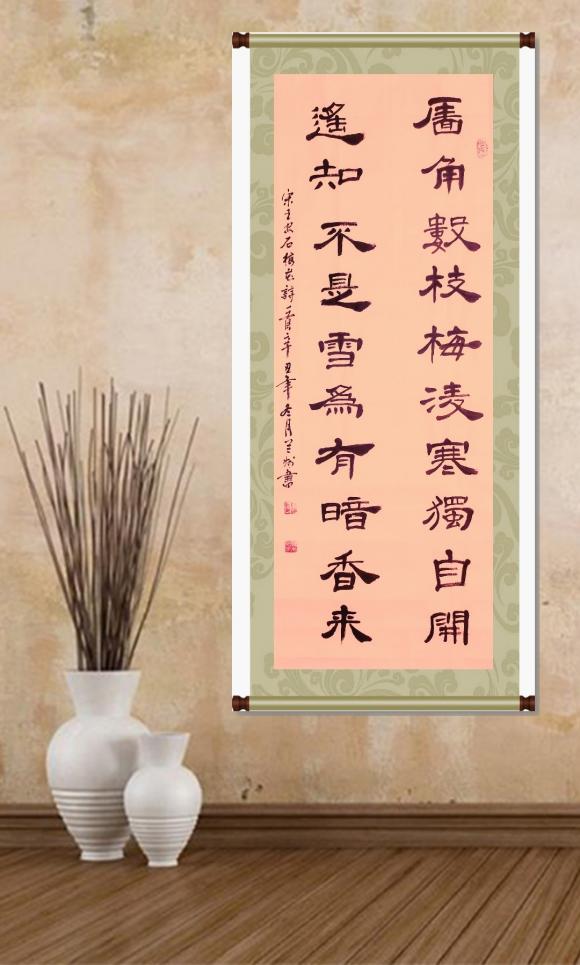 廧角數枝梅淩寒獨自開
遙知不是雪爲有暗香来
宋王安石梅花詩一首辛丑年冬月兰州